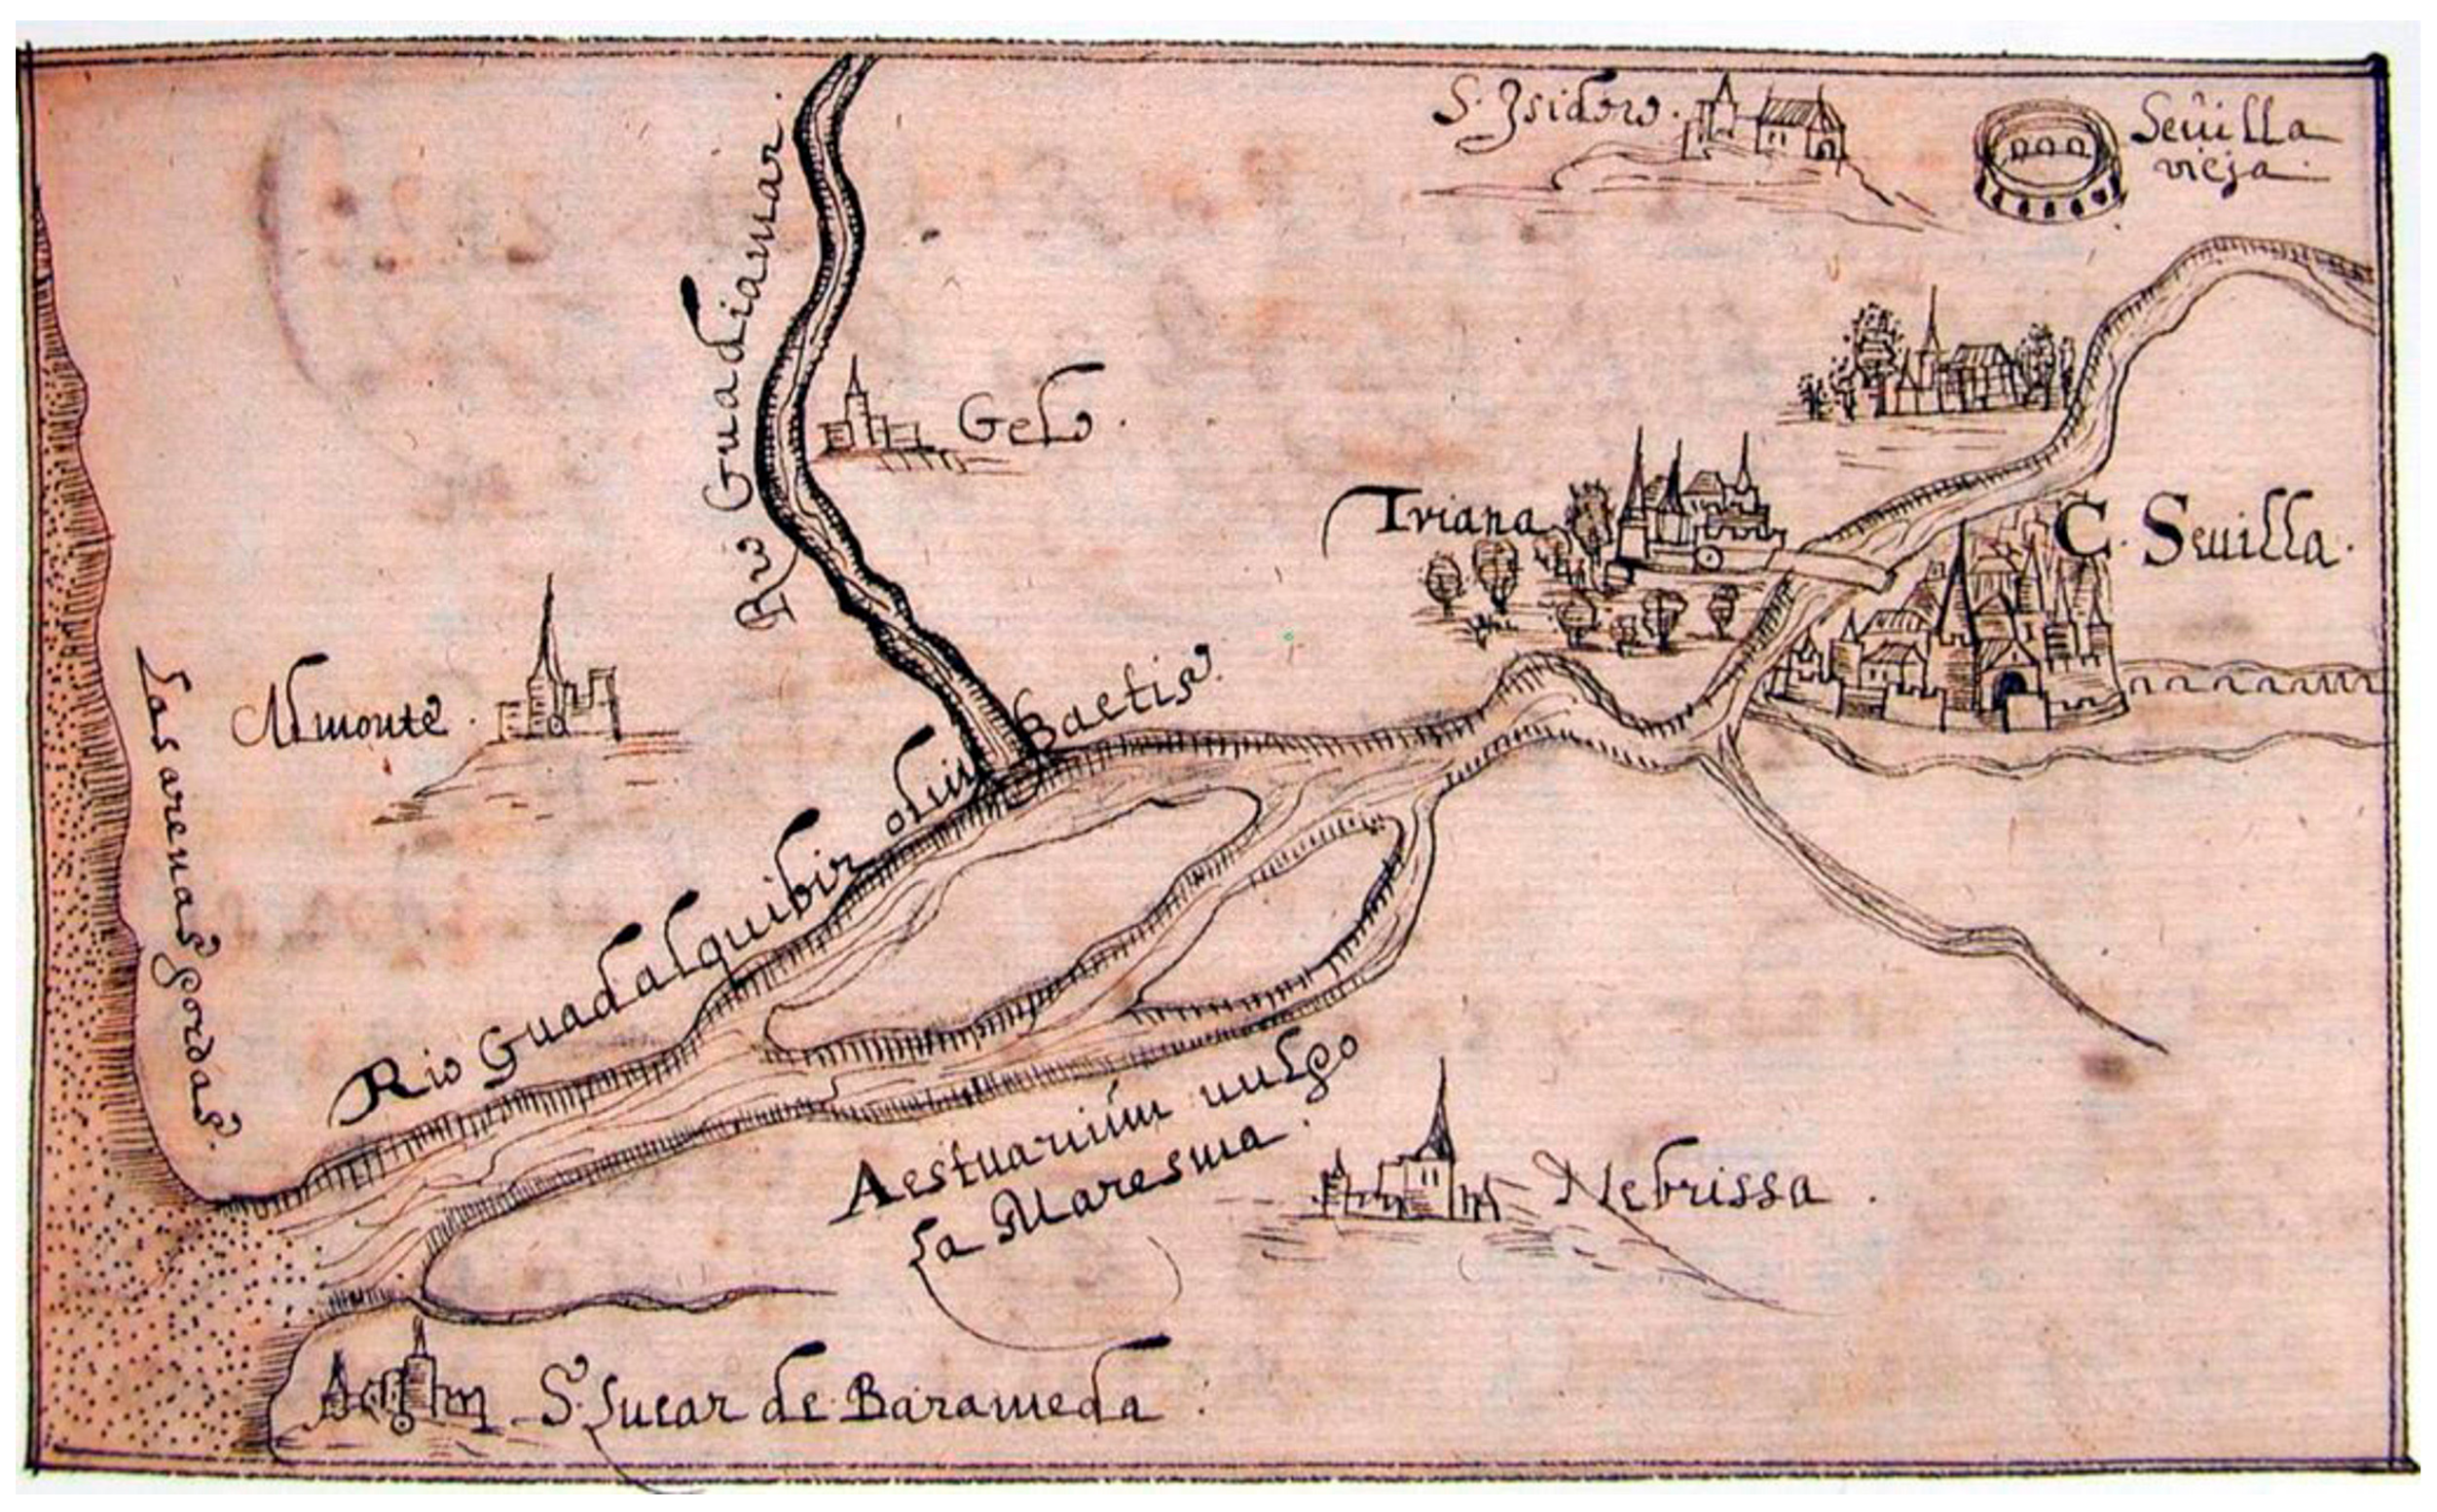 S. Isidoro.
Seuilla
vieja.
Rio Guadiamar.
Gelo.
Triana
C. Seuilla.
Almonte.
Las arenas gordas.
Rio Guadalquibir olim Baetis.
Aestuarium uulgo
La Maresma.
Nebrissa.
S. Lucar de Barameda.